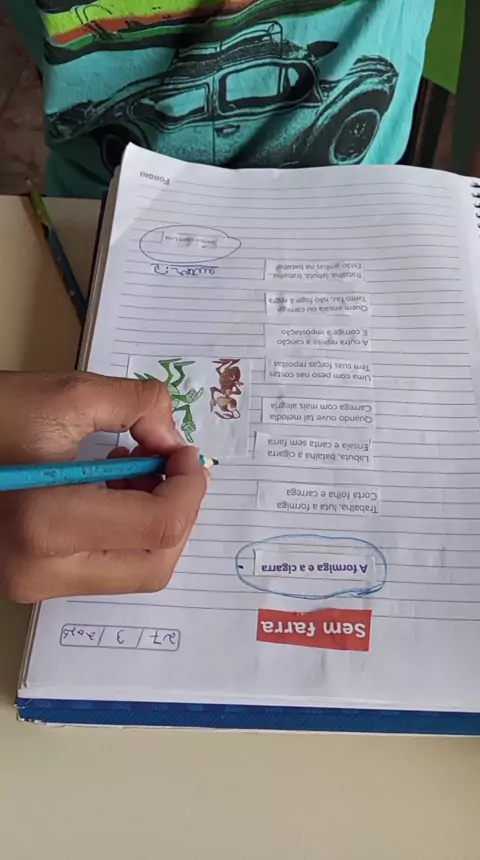 27 / 3 / 2026
Sem farra
A formiga e a cigarra
Trabalha, luta a formiga
Corta folha e carrega
Labuta, batalha a cigarra
Ensaia e canta sem farra
Quando ouve tal melodia
Carrega com mais alegria
Uma com peso nas costas
Tem suas forças repostas
A outra repete a canção
E corrige a impostação
Quem ensaia ou carrega
Tanto faz, não foge à regra
Trabalha, labuta, trabalha
Estão ambas na batalha!
autor:
FORONI